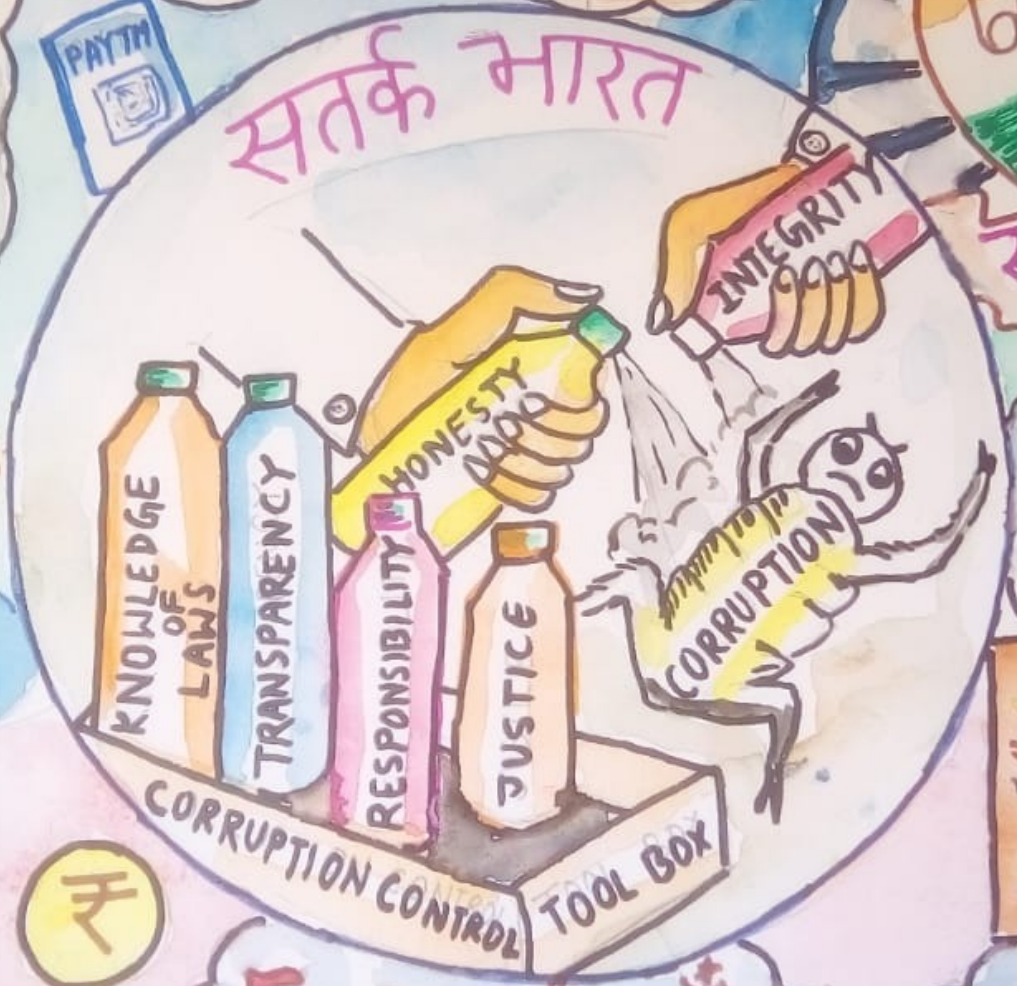 PAYTM
सतर्क भारत
INTEGRITY
HONESTY
KNOWLEDGE
OF
LAWS
TRANSPARENCY
RESPONSIBILITY
JUSTICE
CORRUPTION
CORRUPTION CONTROL
TOOL BOX
₹